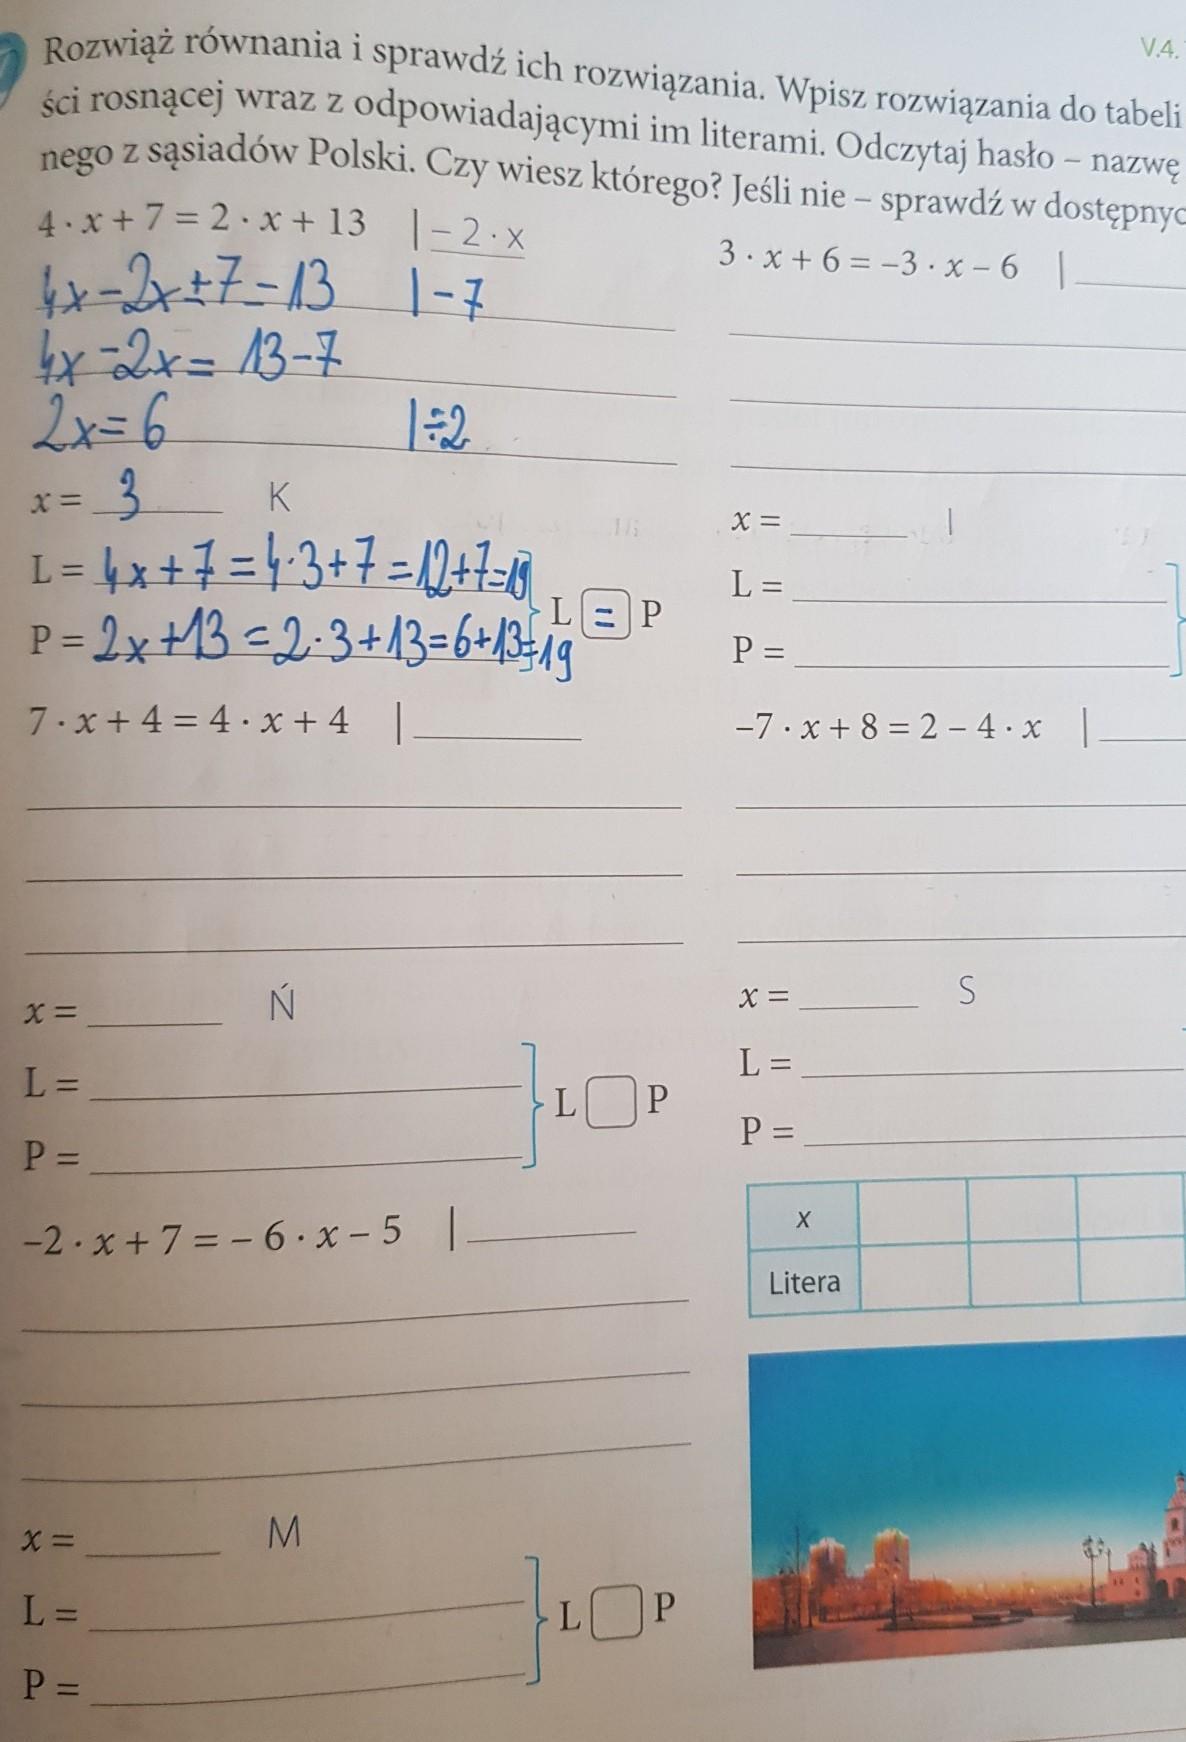 V.4.
Rozwiąż równania i sprawdź ich rozwiązania. Wpisz rozwiązania do tabeli
ści rosnącej wraz z odpowiadającymi im literami. Odczytaj hasło – nazwę
nego z sąsiadów Polski. Czy wiesz którego? Jeśli nie – sprawdź w dostępnyc
4 · x + 7 = 2 · x + 13 | – 2 · x
4x-2x+7=13 |-7
4x-2x= 13-7
2x=6 |÷2
x = 3 K
L = 4x+7=4·3+7=12+7=19
P = 2x+13=2·3+13=6+13=19
L = P
3 · x + 6 = –3 · x – 6 |
x = I
L =
P =
7 · x + 4 = 4 · x + 4 |
x = Ń
L =
P =
L P
–7 · x + 8 = 2 – 4 · x |
x = S
L =
P =
–2 · x + 7 = – 6 · x – 5 |
x = M
L =
P =
L P
x
Litera